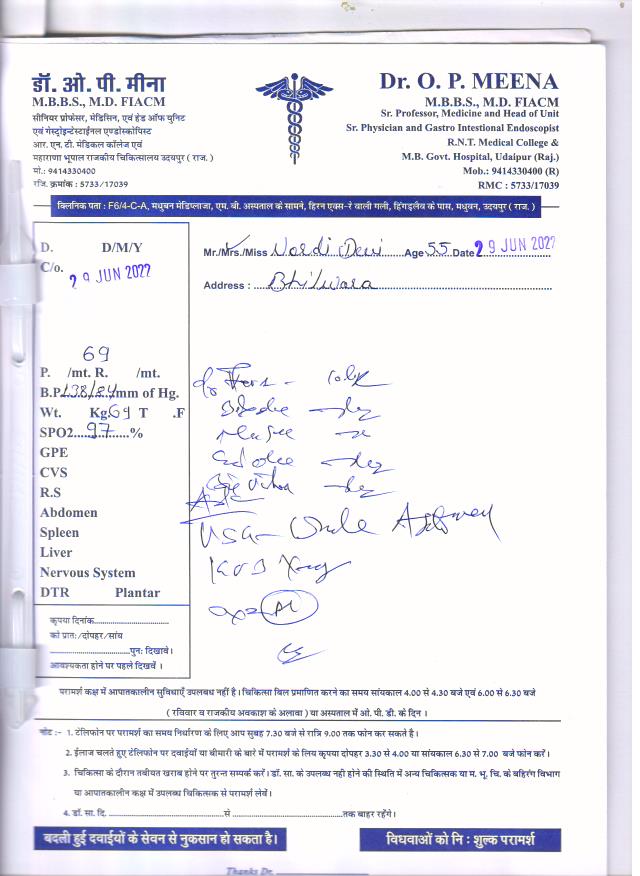 डॉ. ओ. पी. मीना
M.B.B.S., M.D. FIACM
सीनियर प्रोफेसर, मेडिसिन, एवं हेड ऑफ युनिट
एवं गेस्ट्रोइन्टेस्टाईनल एण्डोस्कोपिस्ट
आर. एन. टी. मेडिकल कॉलेज एवं
महाराणा भूपाल राजकीय चिकित्सालय उदयपुर ( राज. )
मो.: 9414330400
रजि. क्रमांक : 5733/17039
Dr. O. P. MEENA
M.B.B.S., M.D. FIACM
Sr. Professor, Medicine and Head of Unit
Sr. Physician and Gastro Intestional Endoscopist
R.N.T. Medical College &
M.B. Govt. Hospital, Udaipur (Raj.)
Mob.: 9414330400 (R)
RMC : 5733/17039
क्लिनिक पता : F6/4-C-A, मधुबन मेडिप्लाजा, एम. बी. अस्पताल के सामने, हिरन एक्स-रे वाली गली, हिंगड़लैब के पास, मधुबन, उदयपुर ( राज. )
D. D/M/Y
C/o. 29 JUN 2022
Mr./Mrs./Miss Devi Age 55 Date 29 JUN 2022
Address : Bhilwara
69
P. /mt. R. /mt.
B.P. 138/84 mm of Hg.
Wt. Kg. 69 T .F
SPO2 97 %
GPE
CVS
R.S
Abdomen
Spleen
Liver
Nervous System
DTR Plantar
USG - Whole Abdomen
KUB Xray
कृपया दिनांक
को प्रात:/दोपहर/सांय
पुन: दिखावें।
आवश्यकता होने पर पहले दिखवें ।
परामर्श कक्ष में आपातकालीन सुविधाएँ उपलबध नहीं है। चिकित्सा बिल प्रमाणित करने का समय सांयकाल 4.00 से 4.30 बजे एवं 6.00 से 6.30 बजे
( रविवार व राजकीय अवकाश के अलावा ) या अस्पताल में ओ. पी. डी. के दिन ।
नोट :- 1. टेलिफोन पर परामर्श का समय निर्धारण के लिए आप सुबह 7.30 बजे से रात्रि 9.00 तक फोन कर सकते है।
2. ईलाज चलते हुए टेलिफोन पर दवाईयों या बीमारी के बारे में परामर्श के लिए कृपया दोपहर 3.30 से 4.00 या सांयकाल 6.30 से 7.00 बजे फोन करें।
3. चिकित्सा के दौरान तबीयत खराब होने पर तुरन्त सम्पर्क करें। डॉ. सा. के उपलब्ध नही होने की स्थिति में अन्य चिकित्सक या म. भू. चि. के बहिरंग विभाग
या आपातकालीन कक्ष में उपलब्ध चिकित्सक से परामर्श लेवें।
4. डॉ. सा. दि. से तक बाहर रहेंगे।
बदली हुई दवाईयों के सेवन से नुकसान हो सकता है।
विधवाओं को नि : शुल्क परामर्श
Thanks Dr.